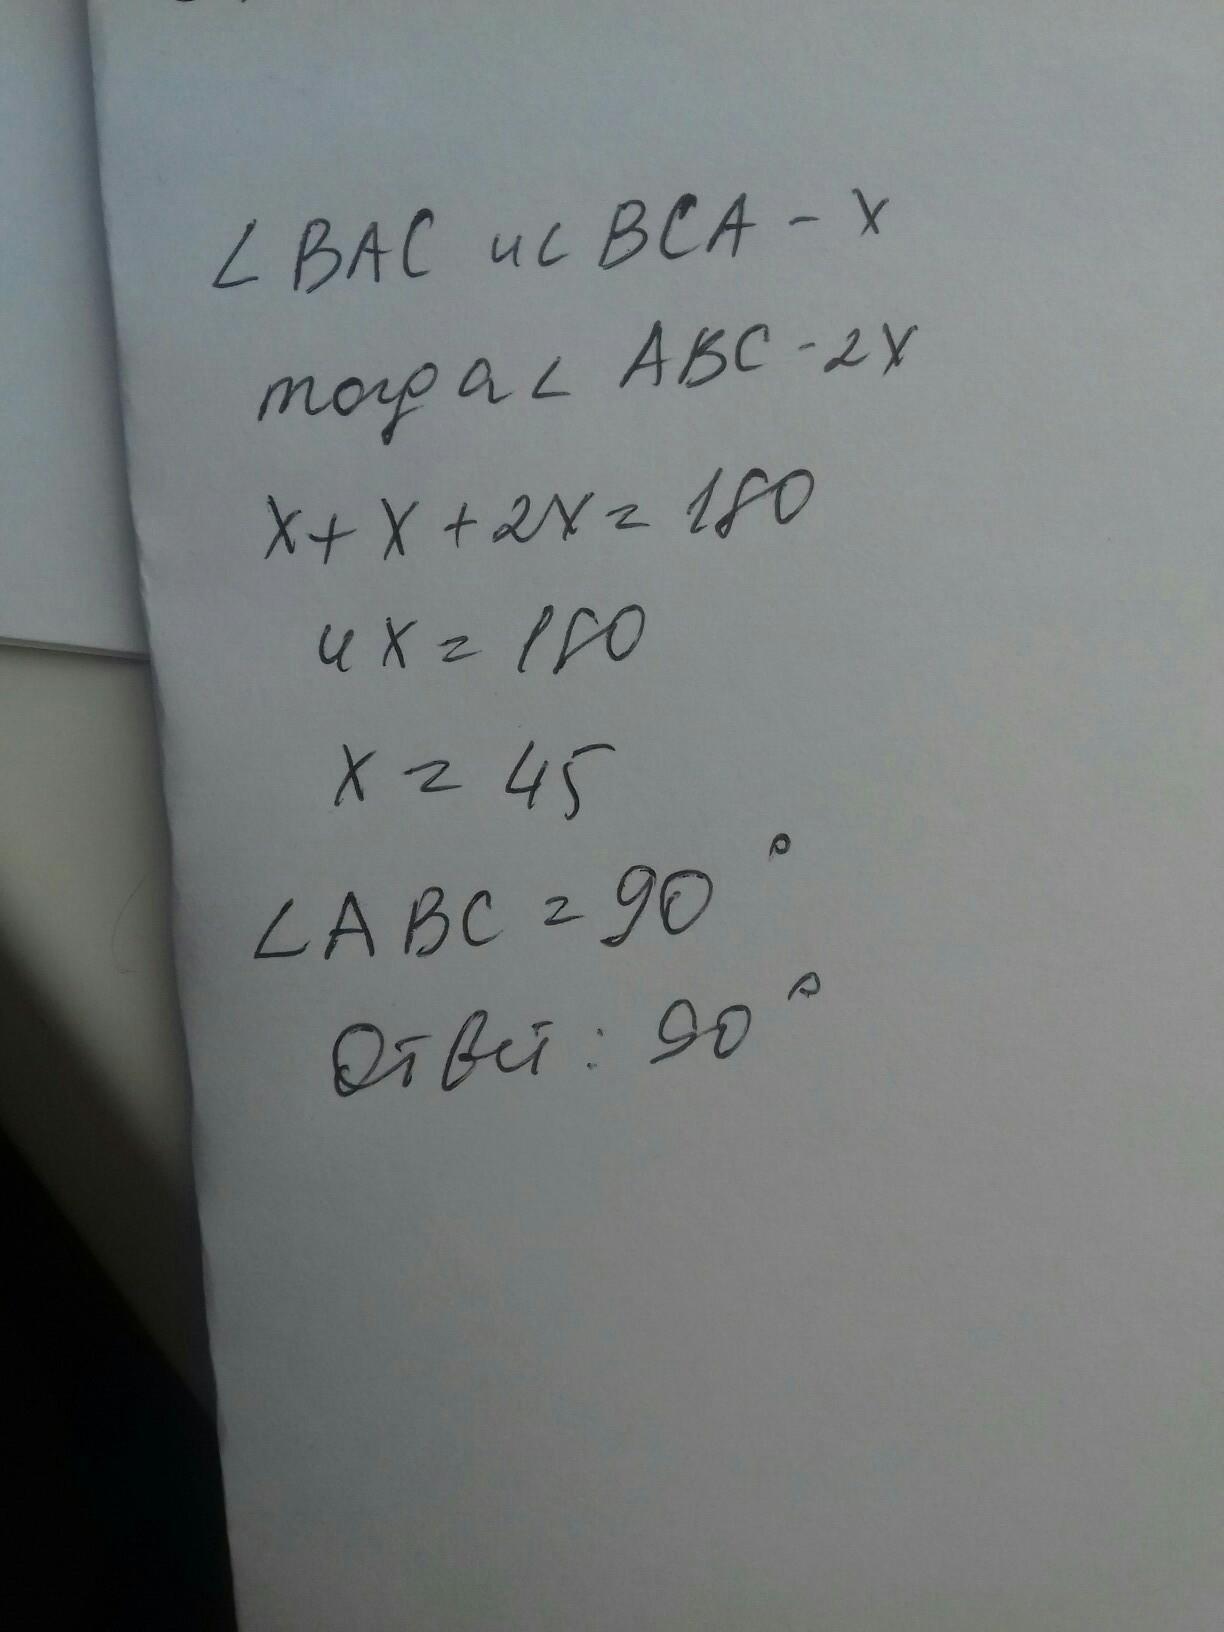 ∠BAC и ∠BCA - x
тогда ∠ABC - 2x
x + x + 2x = 180
4x = 180
x = 45
∠ABC = 90°
Ответ: 90°